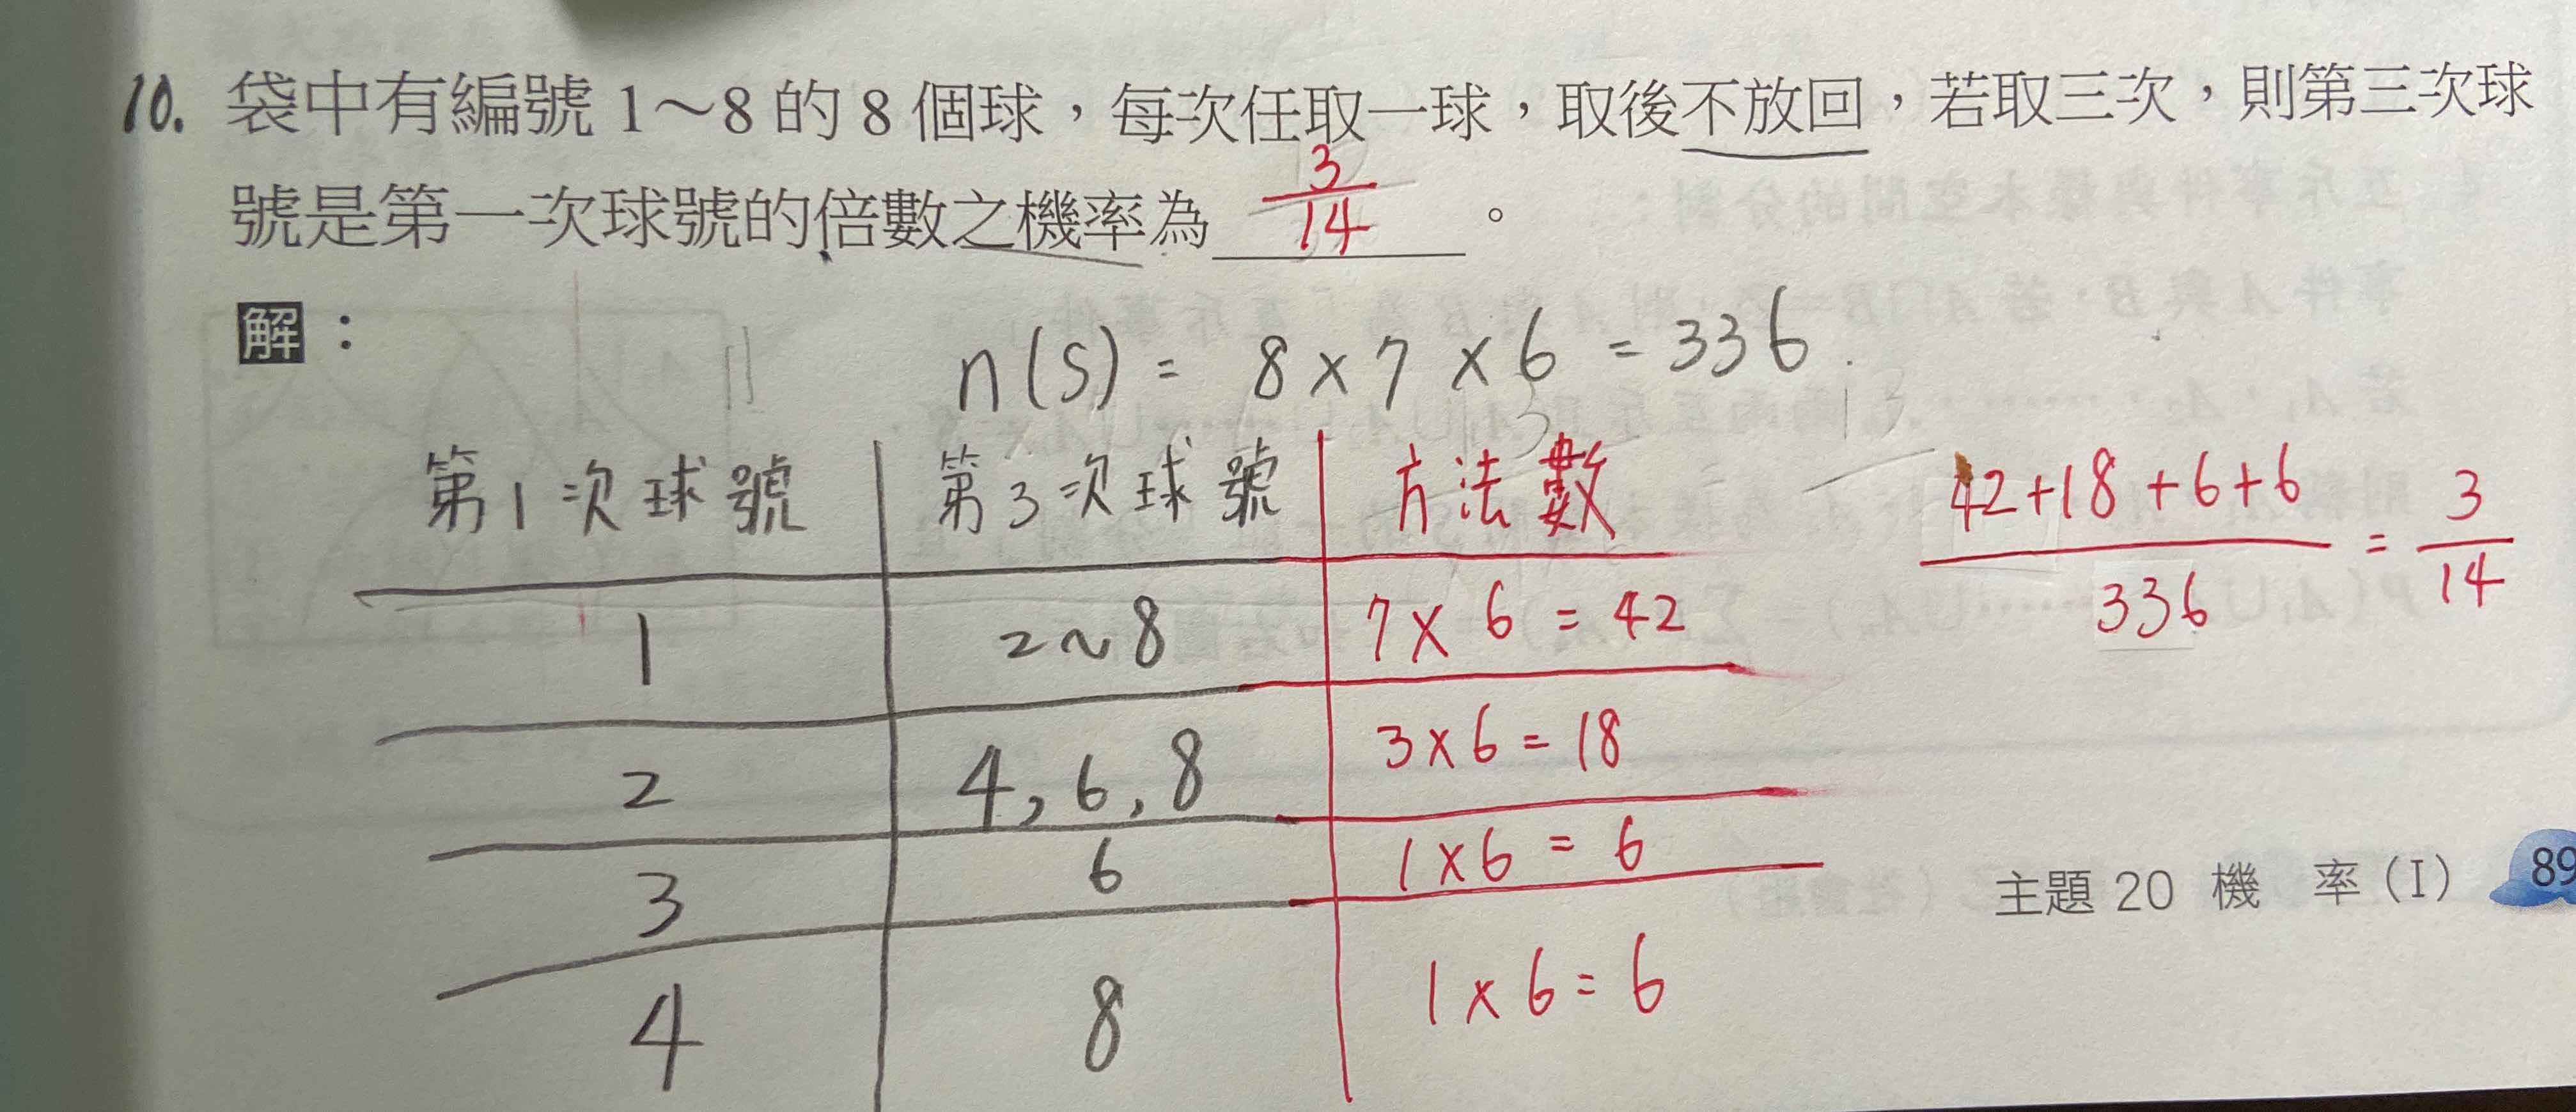 10. 袋中有編號 1～8 的 8 個球，每次任取一球，取後不放回，若取三次，則第三次球
號是第一次球號的倍數之機率為 3/14 。
解：
n(S) = 8 × 7 × 6 = 336
第1次球號 第3次球號 方法數
1 2~8 7 × 6 = 42
2 4, 6, 8 3 × 6 = 18
3 6 1 × 6 = 6
4 8 1 × 6 = 6
42+18+6+6 / 336 = 3/14
主題 20 機 率(I) 89